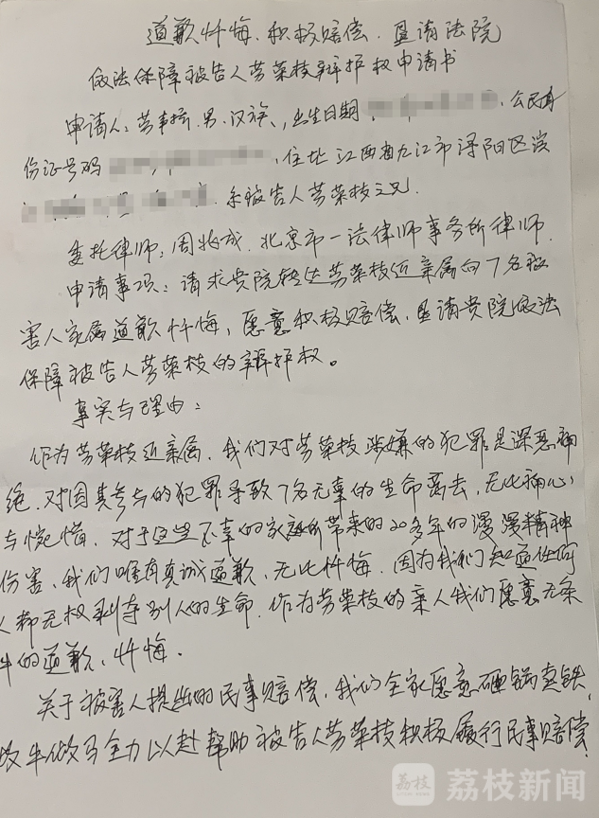 道歉忏悔、积极赔偿、恳请法院
依法保障被告人劳荣枝辩护权申请书
申请人：劳声桥、男、汉族、出生日期 公民身
份证号码 、住址 江西省九江市浔阳区滨
系被告人劳荣枝之兄.
委托律师：周兆成、北京市一法律师事务所律师.
申请事项：请求贵院转达劳荣枝近亲属向7名被
害人家属道歉忏悔，愿意积极赔偿，恳请贵院依法
保障被告人劳荣枝的辩护权。
事实与理由：
作为劳荣枝近亲属，我们对劳荣枝涉嫌的犯罪是深恶痛
绝，对因其参与的犯罪导致7名无辜的生命离去，无比痛心
与惋惜，对于这些不幸的家庭所带来的20多年的漫漫精神
伤害，我们唯有真诚道歉、无比忏悔. 因为我们知道任何
人都无权剥夺别人的生命. 作为劳荣枝的亲人我们愿意无条
件的道歉、忏悔.
关于被害人提出的民事赔偿，我们全家愿意砸锅卖铁，
做牛做马全力以赴帮助被告人劳荣枝积极履行民事赔偿
荔枝
荔枝新闻